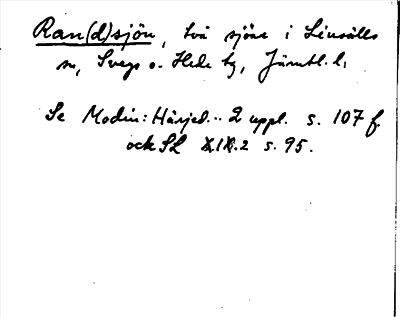 Ran(d)sjön, två sjöar i Linsälls
sn, Svegs o. Hede tg, Jämtl. l.
Se Modin: Härjed... 2 uppl. s. 107 f
ock SL s. 95.